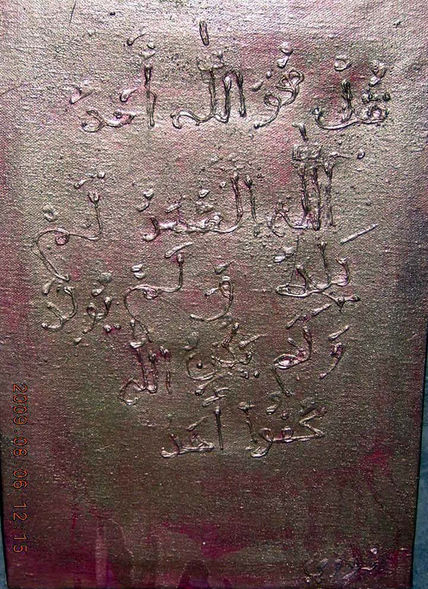 قل هو الله أحد
الله الصمد لم
يلد و لم يولد
ولم يكن الله
كفوا أحد
2009 08 06 12 15